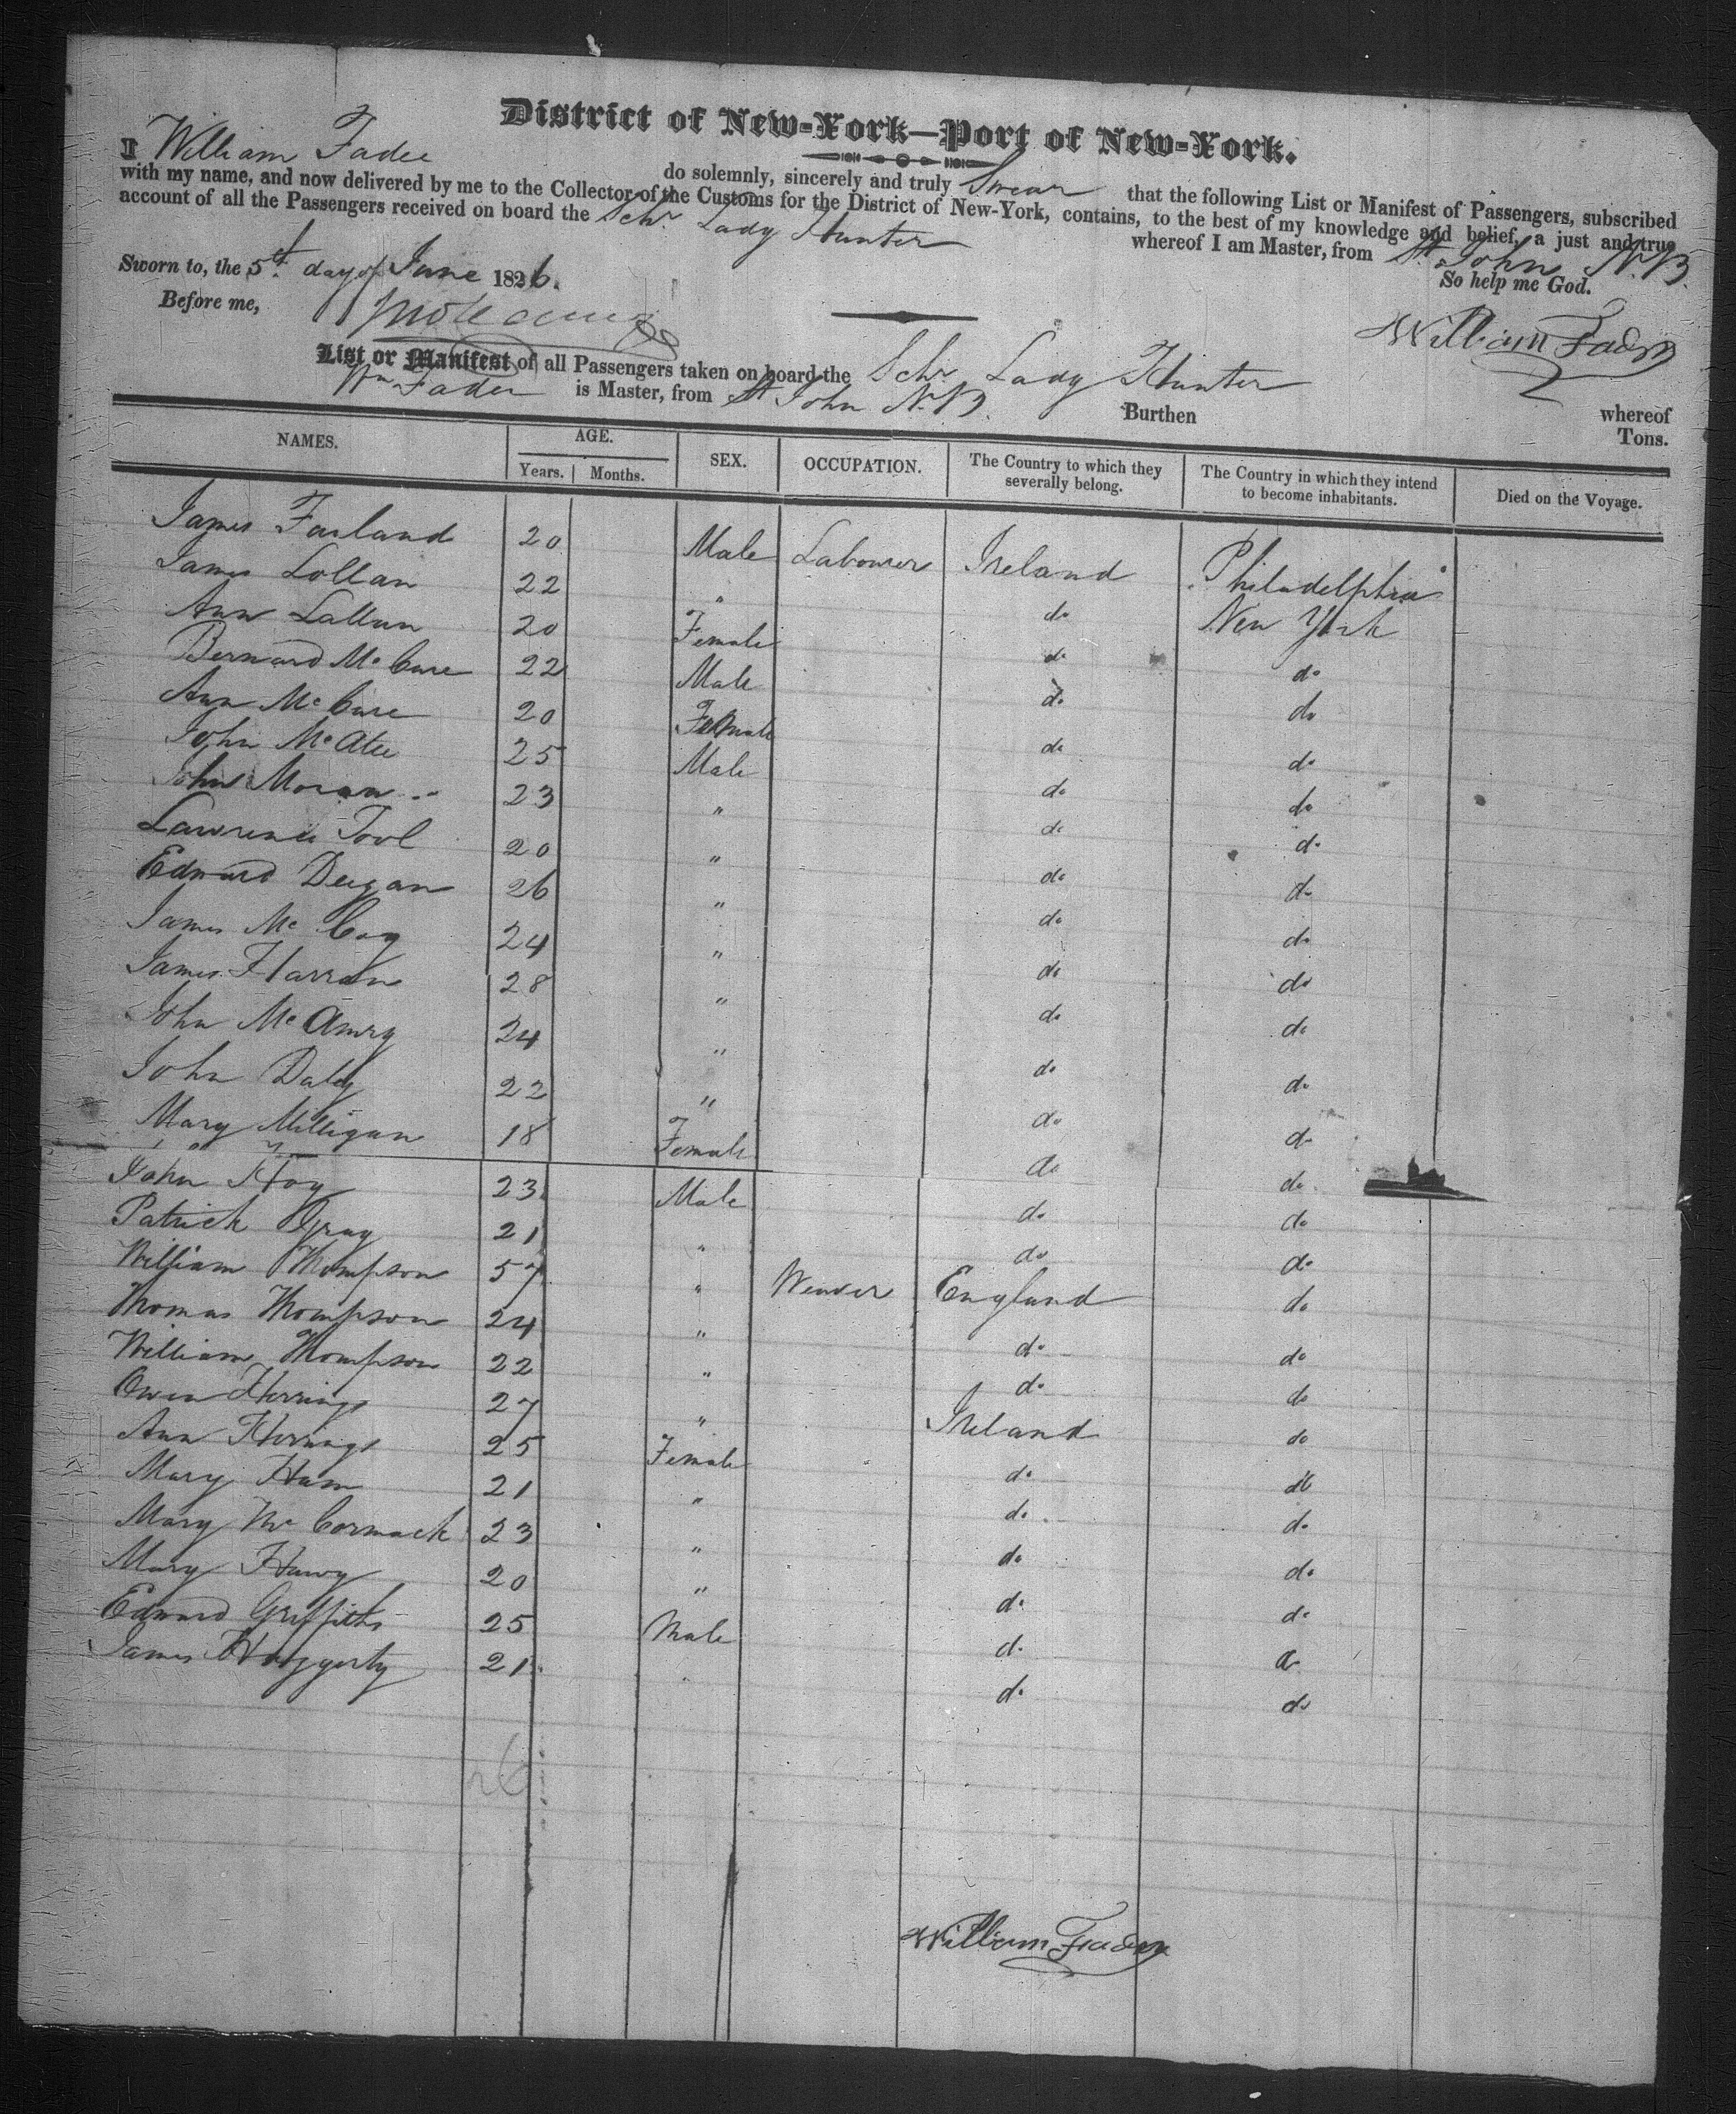 District of New-York—Port of New-York.
I William Fader do solemnly, sincerely and truly Swear that the following List or Manifest of Passengers, subscribed
with my name, and now delivered by me to the Collector of the Customs for the District of New-York, contains, to the best of my knowledge and belief, a just and true
account of all the Passengers received on board the Schr. Lady Hunter whereof I am Master, from St John N.B.
Sworn to, the 5th day of June 1826. So help me God.
Before me,
William Fader
List or Manifest of all Passengers taken on board the Schr Lady Hunter whereof
Wm Fader is Master, from St John N.B. Burthen Tons.
NAMES. AGE. SEX. OCCUPATION. The Country to which they severally belong. The Country in which they intend to become inhabitants. Died on the Voyage.
Years. Months.
James Farland 20 Male Labourer Ireland Philadelphia
James Lollan 22 " do New York
Ann Lallun 20 Female do do
Bernard Mc Cure 22 Male do do
Ann Mc Cure 20 Female do do
John Mc Atee 25 Male do do
John Moran 23 " do do
Lawrence Tool 20 " do do
Edward Deegan 26 " do do
James Mc Coy 24 " do do
James Harran 28 " do do
John Mc Amry 24 " do do
John Daly 22 " do do
Mary Milligan 18 Female do do
John Hoy 23 Male do do
Patrick Gray 21 " do do
William Thompson 57 " Weaver England do
Thomas Thompson 24 " do do
William Thompson 22 " do do
Owen Herrings 27 " Ireland do
Ann Herrings 25 Female do do
Mary Ham 21 " do do
Mary Mc Cormack 23 " do do
Mary Harvy 20 " do do
Edward Griffiths 25 Male do do
James Haggerty 21 " do do
26
William Fader